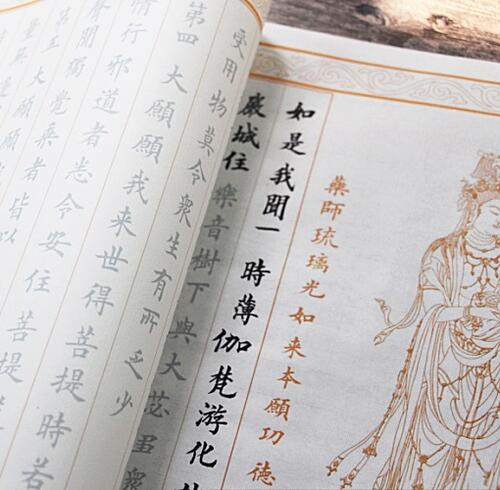 藥師琉璃光如来本願功德
如是我聞一時薄伽梵游化
嚴城住樂音樹下與大苾
受用物莫令衆生有所乏少
第四大願願我来世得菩提時若
情行邪道者悉令安住菩提
聲聞獨覺乘者皆以
第五大願願